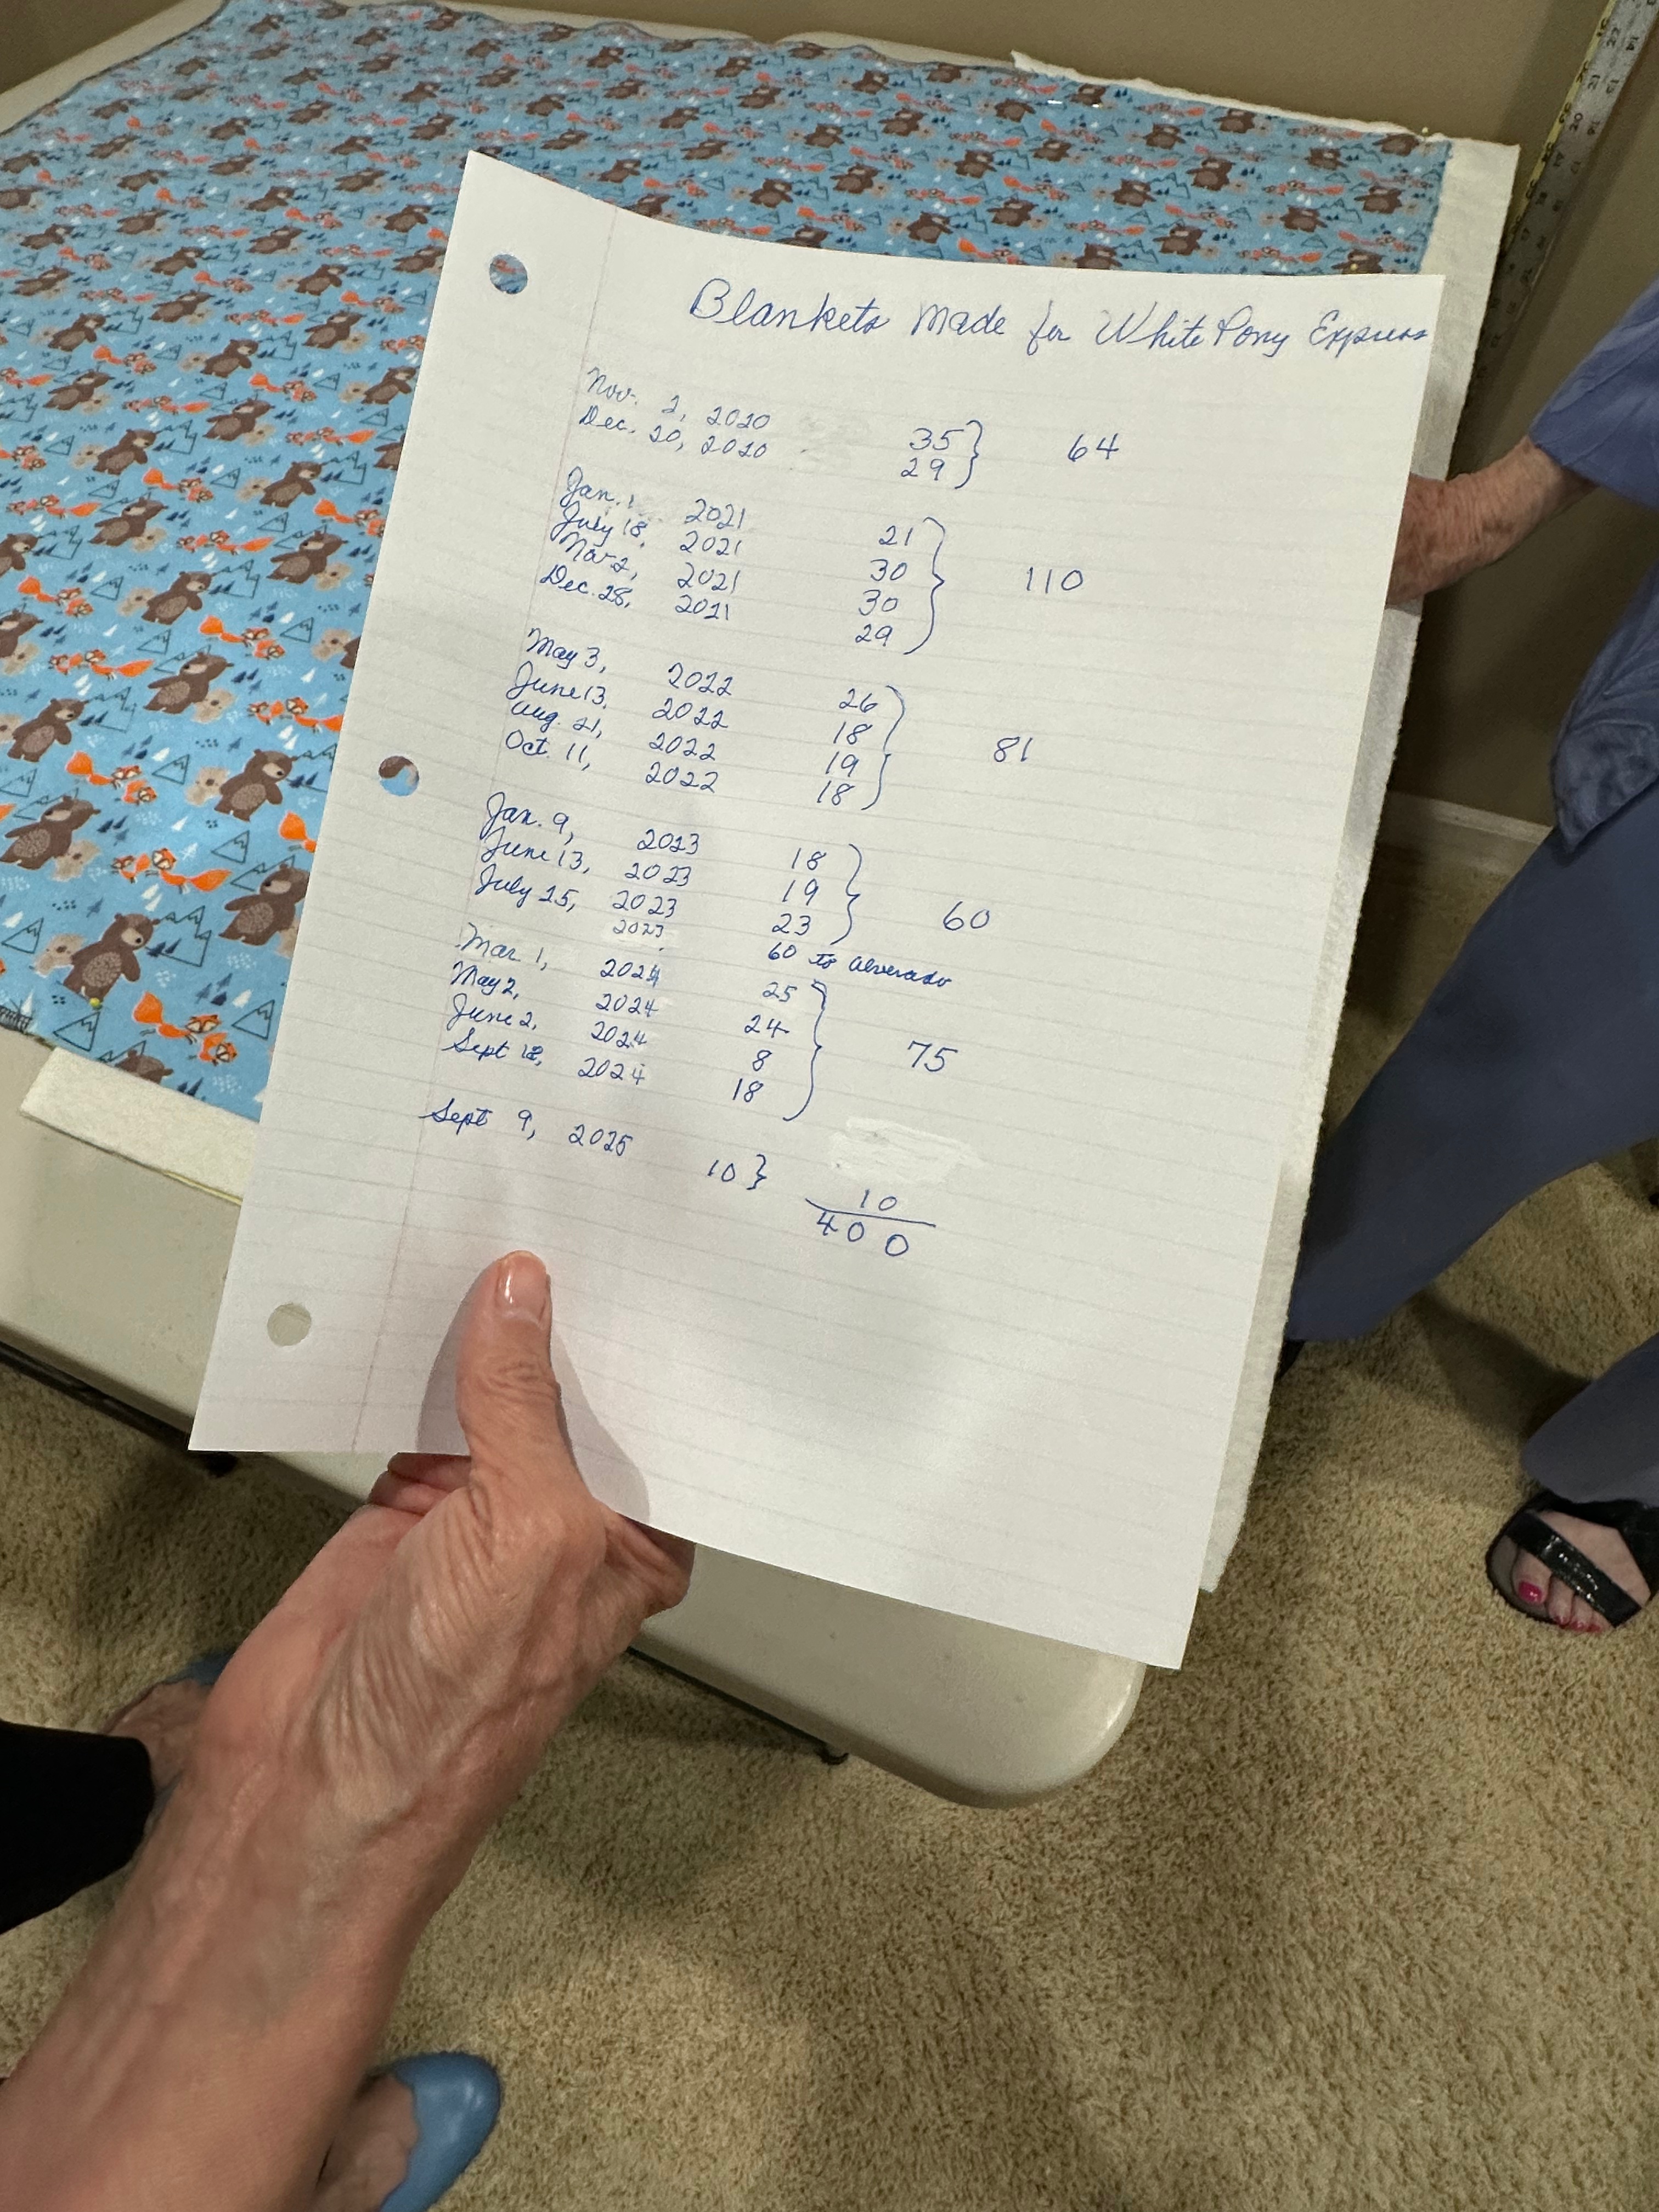 Blankets Made for White Pony Express
Nov. 2, 2020 35 } 64
Dec. 20, 2020 29
Jan. 1 2021 21 } 110
July 18, 2021 30
Nov 2, 2021 30
Dec. 28, 2021 29
May 3, 2022 26 } 81
June 13, 2022 18
Aug. 21, 2022 19
Oct. 11, 2022 18
Jan. 9, 2023 18 } 60
June 13, 2023 19
July 25, 2023 23
2023 60 to Alverado
Mar 1, 2024 25 } 75
May 2, 2024 24
June 2, 2024 8
Sept 12, 2024 18
Sept 9, 2025 10 } 10
400